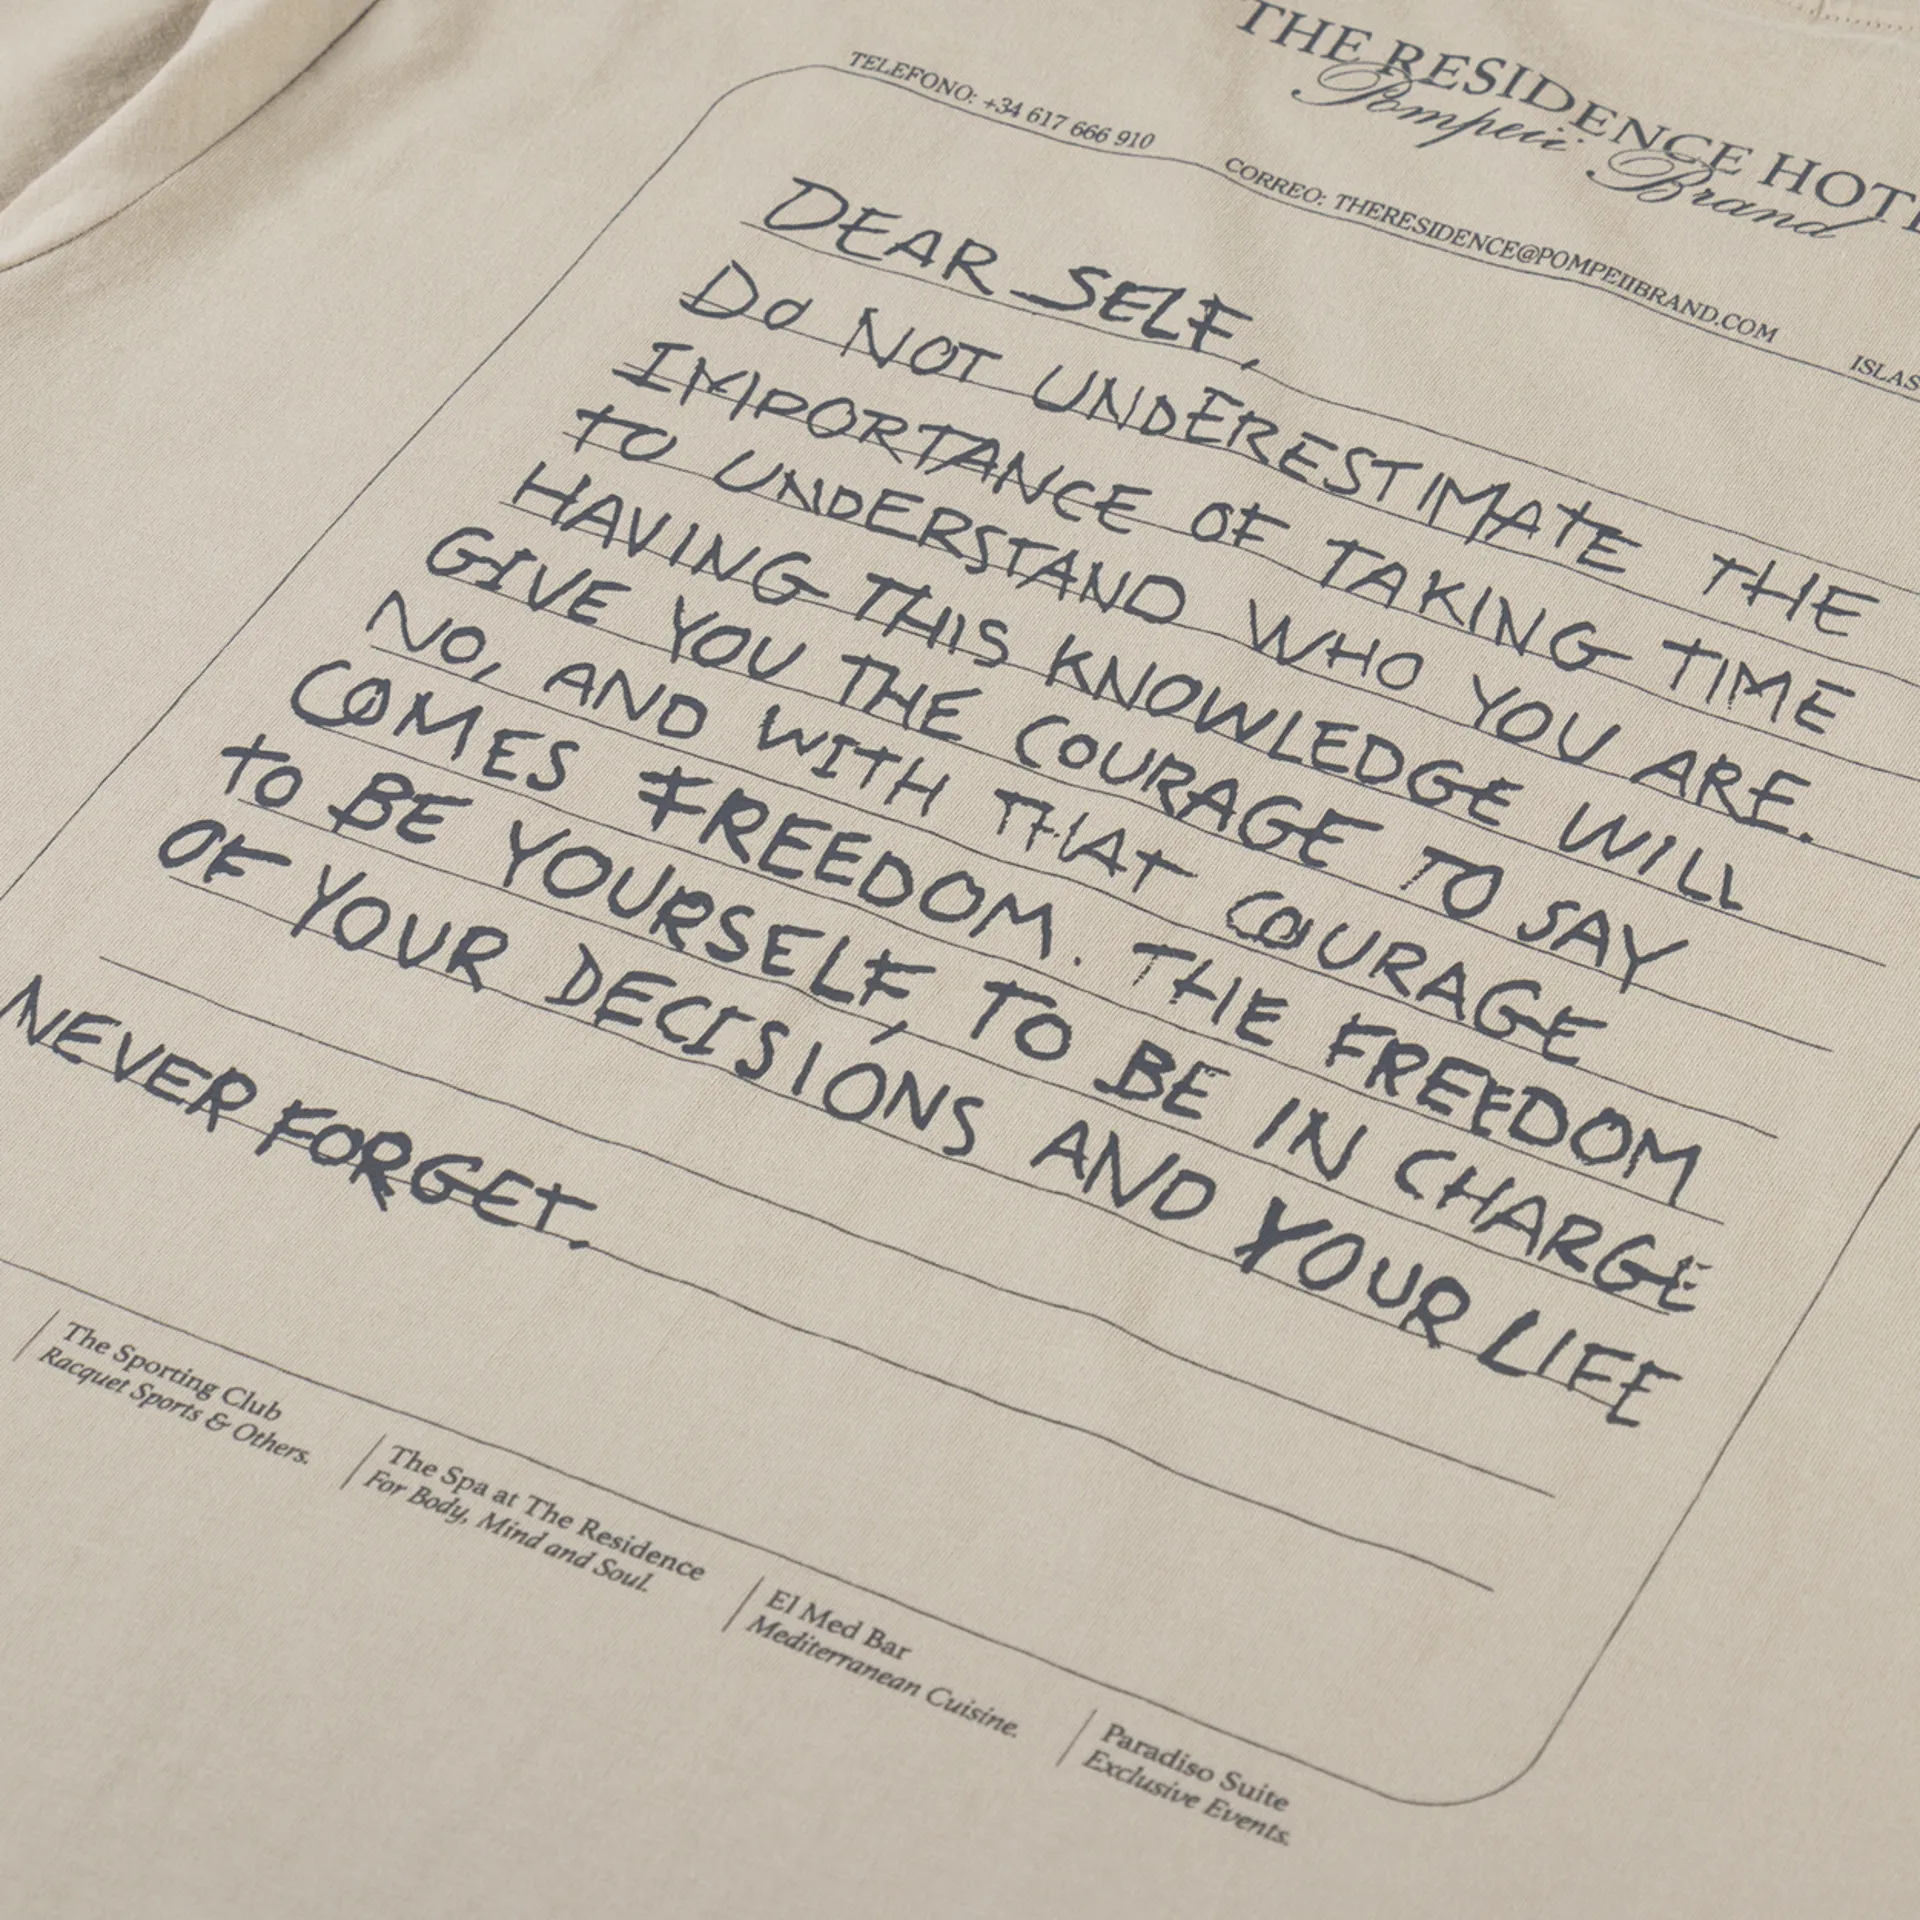 THE RESIDENCE
Pompeii Brand
TELEFONO: +34 617 666 910
CORREO: THERESIDENCE@POMPEIIBRAND.COM
DEAR SELF,
DO NOT UNDERESTIMATE THE
IMPORTANCE OF TAKING TIME
TO UNDERSTAND WHO YOU ARE.
HAVING THIS KNOWLEDGE WILL
GIVE YOU THE COURAGE TO SAY
NO, AND WITH THAT COURAGE
COMES FREEDOM. THE FREEDOM
TO BE YOURSELF, TO BE IN CHARGE
OF YOUR DECISIONS AND YOUR LIFE
NEVER FORGET.
The Sporting Club
Racquet Sports & Others.
The Spa at The Residence
For Body, Mind and Soul.
El Med Bar
Mediterranean Cuisine.
Paradiso Suite
Exclusive Events.